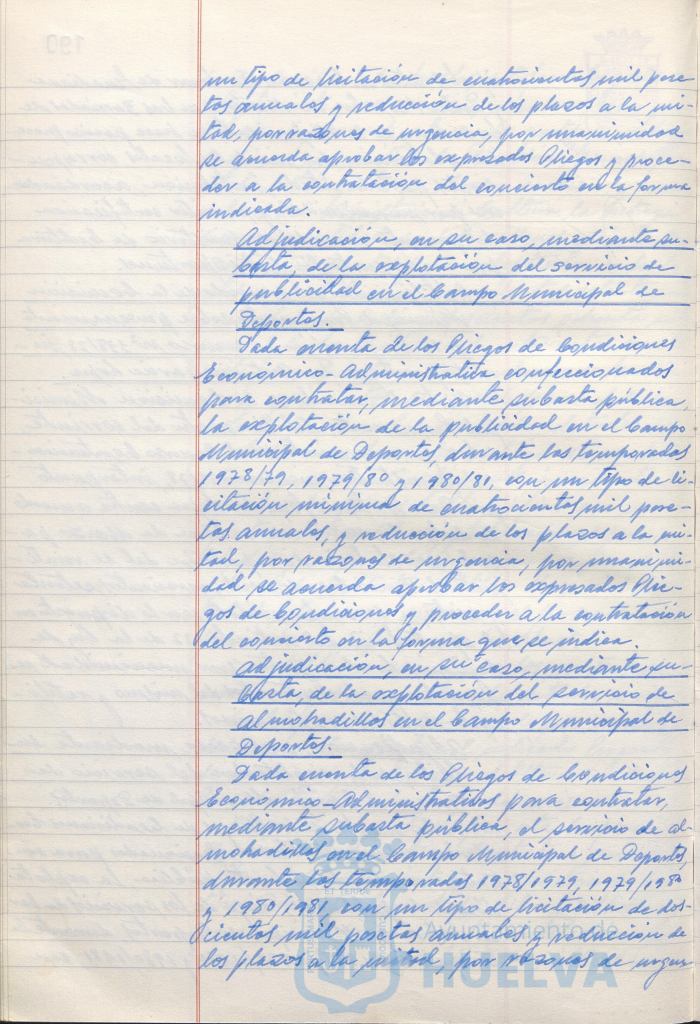 un tipo de licitación de cuatrocientas mil pese-
tas anuales y reducción de los plazos a la mi-
tad, por razones de urgencia, por unanimidad
se acuerda aprobar los expresados Pliegos y proce-
der a la contratación del concierto en la forma
indicada.
Adjudicación, en su caso, mediante su-
basta, de la explotación del servicio de
publicidad en el Campo Municipal de
Deportes.
Dada cuenta de los Pliegos de Condiciones
Económico-Administrativa confeccionados
para contratar, mediante subasta pública,
la explotación de la publicidad en el Campo
Municipal de Deportes, durante las temporadas
1978/79, 1979/80 y 1980/81, con un tipo de li-
citación mínima de cuatrocientas mil pese-
tas anuales, y reducción de los plazos a la mi-
tad, por razones de urgencia, por unanimi-
dad se acuerda aprobar los expresados Plie-
gos de Condiciones y proceder a la contratación
del concierto en la forma que se indica.
Adjudicación, en su caso, mediante su-
basta, de la explotación del servicio de
almohadillas en el Campo Municipal de
Deportes.
Dada cuenta de los Pliegos de Condiciones
Económico-Administrativas para contratar,
mediante subasta pública, el servicio de al-
mohadillas en el Campo Municipal de Deportes,
durante las temporadas 1978/1979, 1979/1980
y 1980/1981, con un tipo de licitación de dos-
cientas mil pesetas anuales y reducción de
los plazos a la mitad, por razones de urgen
Ayuntamiento de
HUELVA